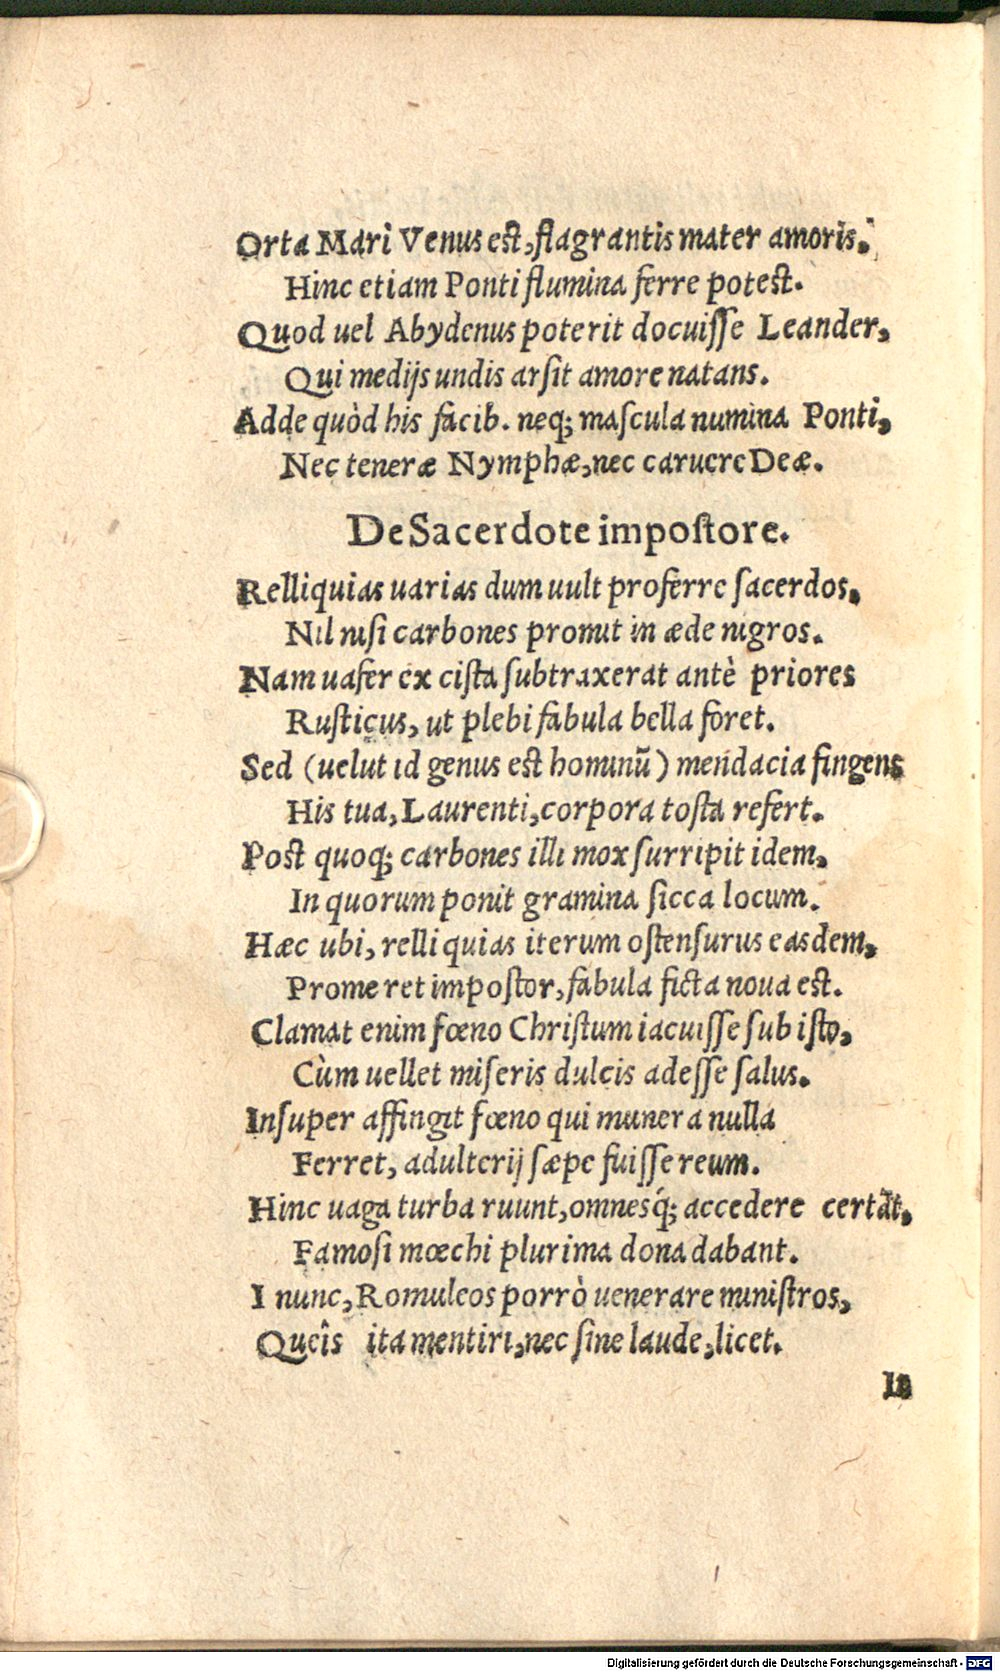 Orta Mari Venus est, flagrantis mater amoris.
Hinc etiam Ponti flumina ferre potest.
Quod uel Abydenus poterit docuiſſe Leander,
Qui medijs undis arſit amore natans.
Adde quòd his facib. neq; maſcula numina Ponti,
Nec teneræ Nymphæ, nec caruere Deæ.
De Sacerdote impoſtore.
Relliquias uarias dum uult proferre ſacerdos,
Nil niſi carbones promit in æde nigros.
Nam uafer ex ciſta ſubtraxerat antè priores
Ruſticus, ut plebi fabula bella foret.
Sed (uelut id genus est hominū) mendacia fingens
His tua, Laurenti, corpora toſta refert.
Post quoq; carbones illi mox ſurripit idem,
In quorum ponit gramina ſicca locum.
Hæc ubi, relliquias iterum oſtenſurus easdem,
Promeret impoſtor, fabula ficta noua est.
Clamat enim fœno Chriſtum iacuiſſe ſub iſto,
Cùm uellet miſeris dulcis adeſſe ſalus.
Inſuper affingit fœno qui munera nulla
Ferret, adulterij ſæpe fuiſſe reum.
Hinc uaga turba ruunt, omnesq́; accedere certāt,
Famoſi mœchi plurima dona dabant.
I nunc, Romuleos porrò uenerare miniſtros,
Queîs ita mentiri, nec ſine laude, licet.
Digitalisierung gefördert durch die Deutsche Forschungsgemeinschaft - DFG